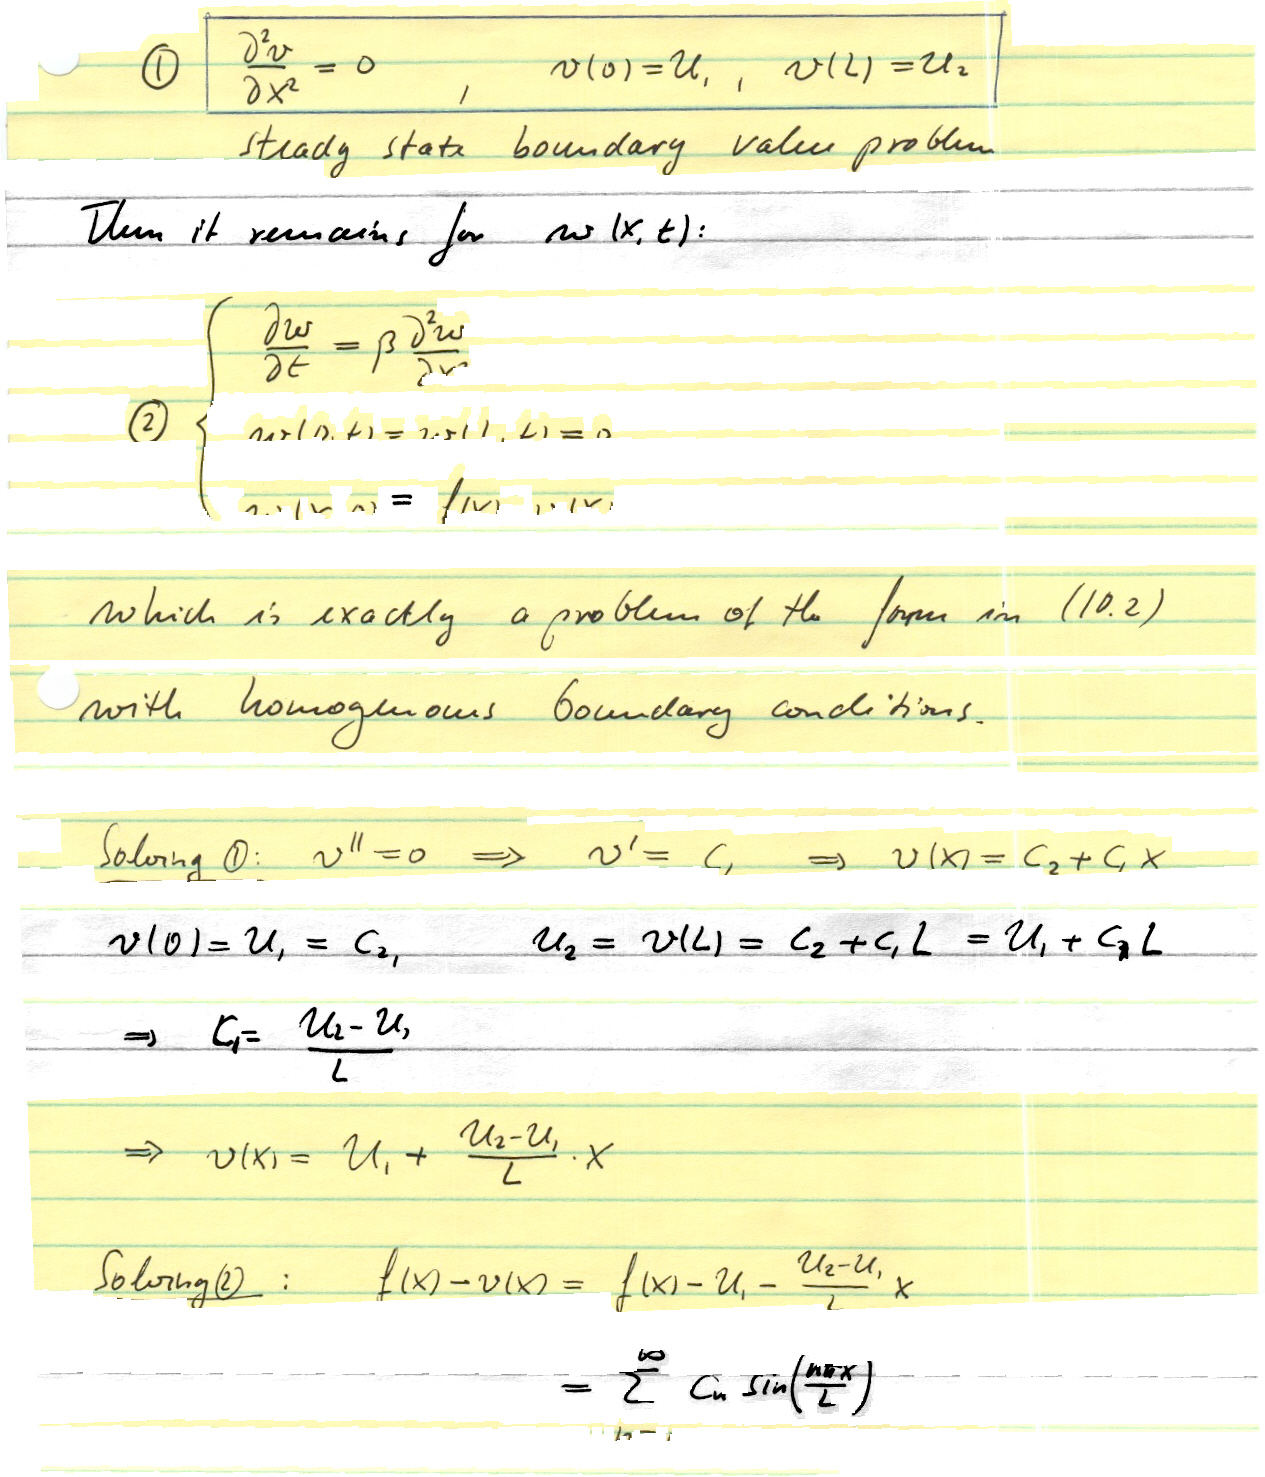 ① ∂²v/∂x² = 0 , v(0) = U₁ , v(L) = U₂
steady state boundary value problem
Then it remains for w(x,t):
∂w/∂t = β ∂²w/∂x²
② { w(0,t) = w(L,t) = 0
w(x,0) = f(x) - v(x)
which is exactly a problem of the form in (10.2)
with homogenous boundary conditions.
Solving ①: v'' = 0 ⟹ v' = C₁ ⟹ v(x) = C₂ + C₁ x
v(0) = U₁ = C₂, U₂ = v(L) = C₂ + C₁ L = U₁ + C₁ L
⟹ C₁ = (U₂ - U₁)/L
⟹ v(x) = U₁ + (U₂ - U₁)/L · x
Solving ②: f(x) - v(x) = f(x) - U₁ - (U₂ - U₁)/L x
= ∑_{n=1}^∞ Cₙ sin(nπx/L)